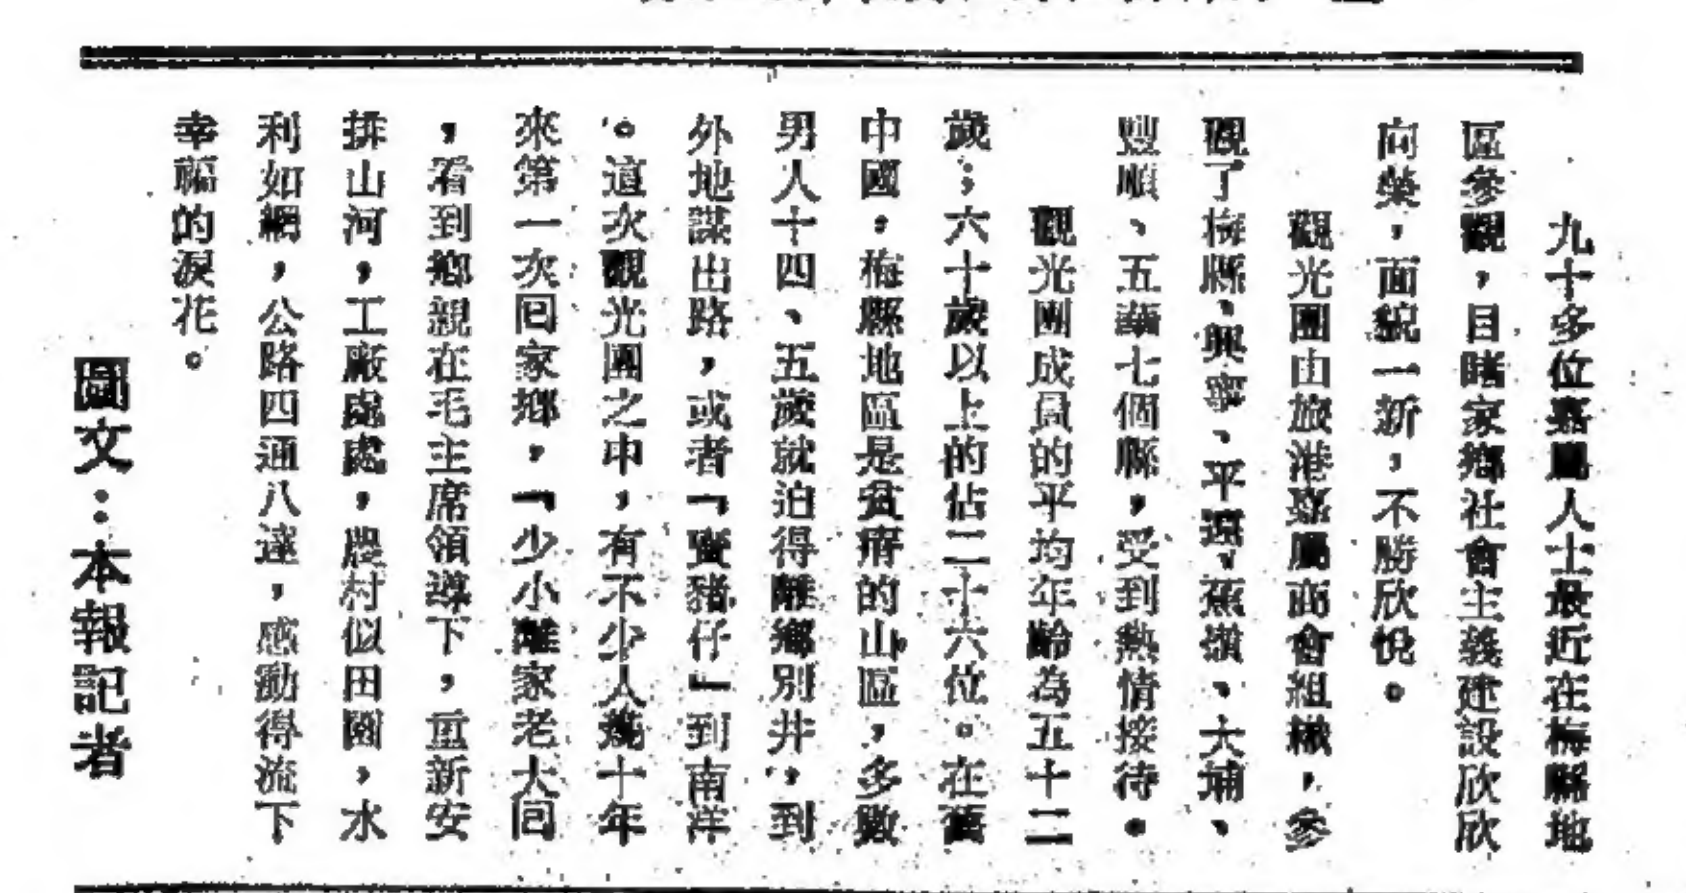 九十多位嘉屬人士最近在梅縣地
區參觀，目睹家鄉社會主義建設欣欣
向榮，面貌一新，不勝欣悅。
觀光團由旅港嘉屬商會組織，參
觀了梅縣、興寧、平遠、蕉嶺、大埔、
豐順、五華七個縣，受到熱情接待。
觀光團成員的平均年齡為五十二
歲；六十歲以上的佔二十六位。在舊
中國，梅縣地區是貧瘠的山區，多數
男人十四、五歲就迫得離鄉別井，到
外地謀出路，或者「賣豬仔」到南洋
。這次觀光團之中，有不少人幾十年
來第一次回家鄉，「少小離家老大回
，看到鄉親在毛主席領導下，重新安
排山河，工廠處處，農村似田園，水
利如網，公路四通八達，感動得流下
幸福的淚花。
圖文：本報記者